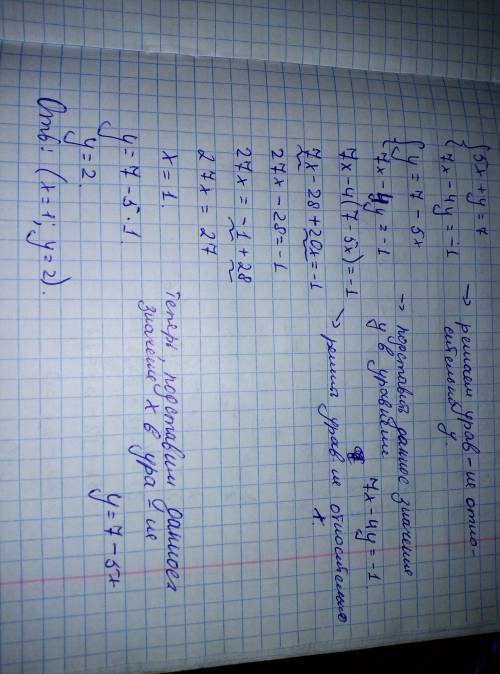 { 5x + y = 7 → решаем урав-ие относительно y.
{ 7x - 4y = -1
{ y = 7 - 5x → подставим данное значение
{ 7x - 4y = -1 y в уравнение 7x - 4y = -1
7x - 4(7 - 5x) = -1
7x - 28 + 20x = -1 → решим урав-ие относительно x.
27x - 28 = -1
27x = -1 + 28
27x = 27
x = 1. Теперь, подставим данное
значение x в ура-ие y = 7 - 5x
y = 7 - 5 · 1.
y = 2.
Отв: (x = 1; y = 2).